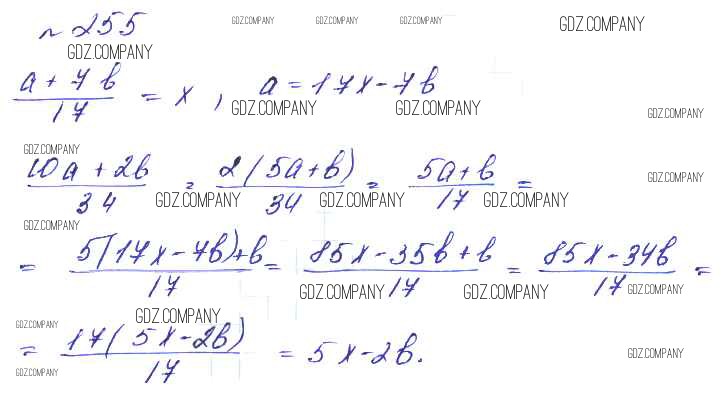 № 255
GDZ.COMPANY GDZ.COMPANY GDZ.COMPANY GDZ.COMPANY
GDZ.COMPANY
(a + 7b)/17 = x, a = 17x - 7b
GDZ.COMPANY GDZ.COMPANY GDZ.COMPANY
GDZ.COMPANY
(10a + 2b)/34 = 2(5a+b)/34 = (5a+b)/17 =
GDZ.COMPANY
GDZ.COMPANY GDZ.COMPANY GDZ.COMPANY
GDZ.COMPANY
= (5(17x - 7b)+b)/17 = (85x - 35b + b)/17 = (85x - 34b)/17 =
GDZ.COMPANY GDZ.COMPANY GDZ.COMPANY
GDZ.COMPANY
GDZ.COMPANY
= 17(5x - 2b)/17 = 5x - 2b.
GDZ.COMPANY
GDZ.COMPANY